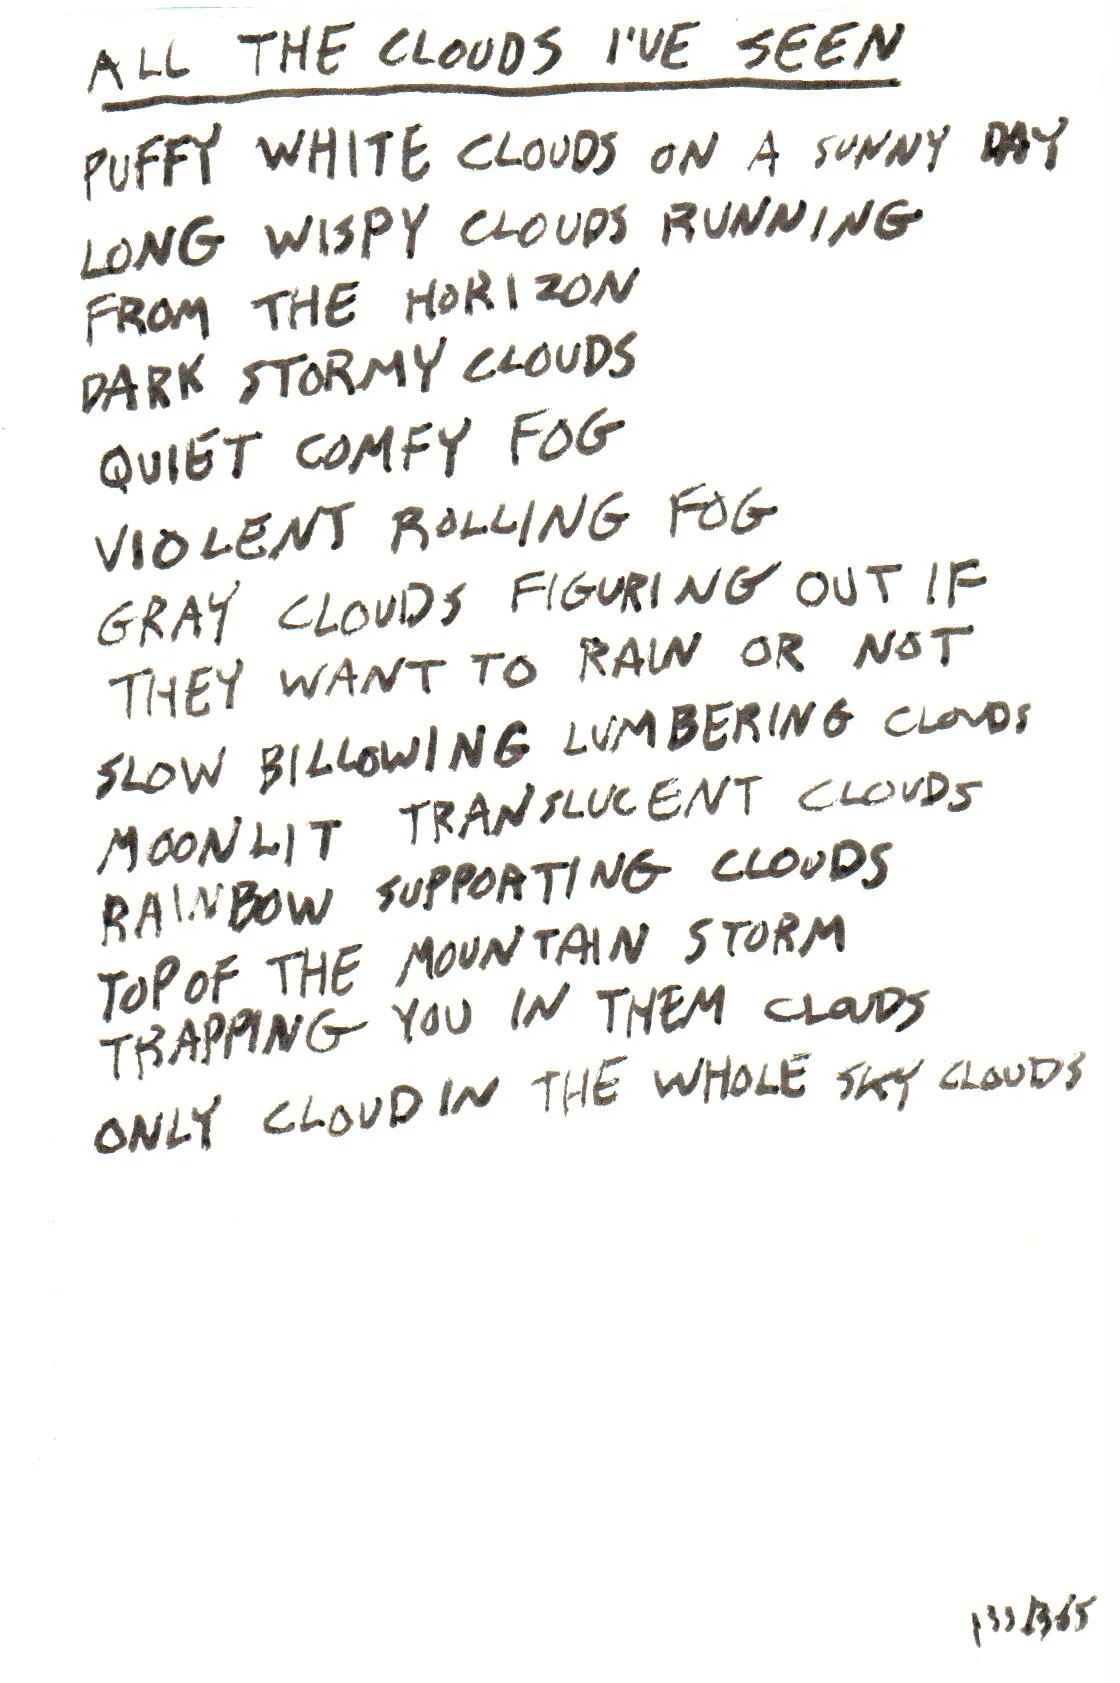 ALL THE CLOUDS I'VE SEEN
PUFFY WHITE CLOUDS ON A SUNNY DAY
LONG WISPY CLOUDS RUNNING
FROM THE HORIZON
DARK STORMY CLOUDS
QUIET COMFY FOG
VIOLENT ROLLING FOG
GRAY CLOUDS FIGURING OUT IF
THEY WANT TO RAIN OR NOT
SLOW BILLOWING LUMBERING CLOUDS
MOONLIT TRANSLUCENT CLOUDS
RAINBOW SUPPORTING CLOUDS
TOP OF THE MOUNTAIN STORM
TRAPPING YOU IN THEM CLOUDS
ONLY CLOUD IN THE WHOLE SKY CLOUDS
133/365